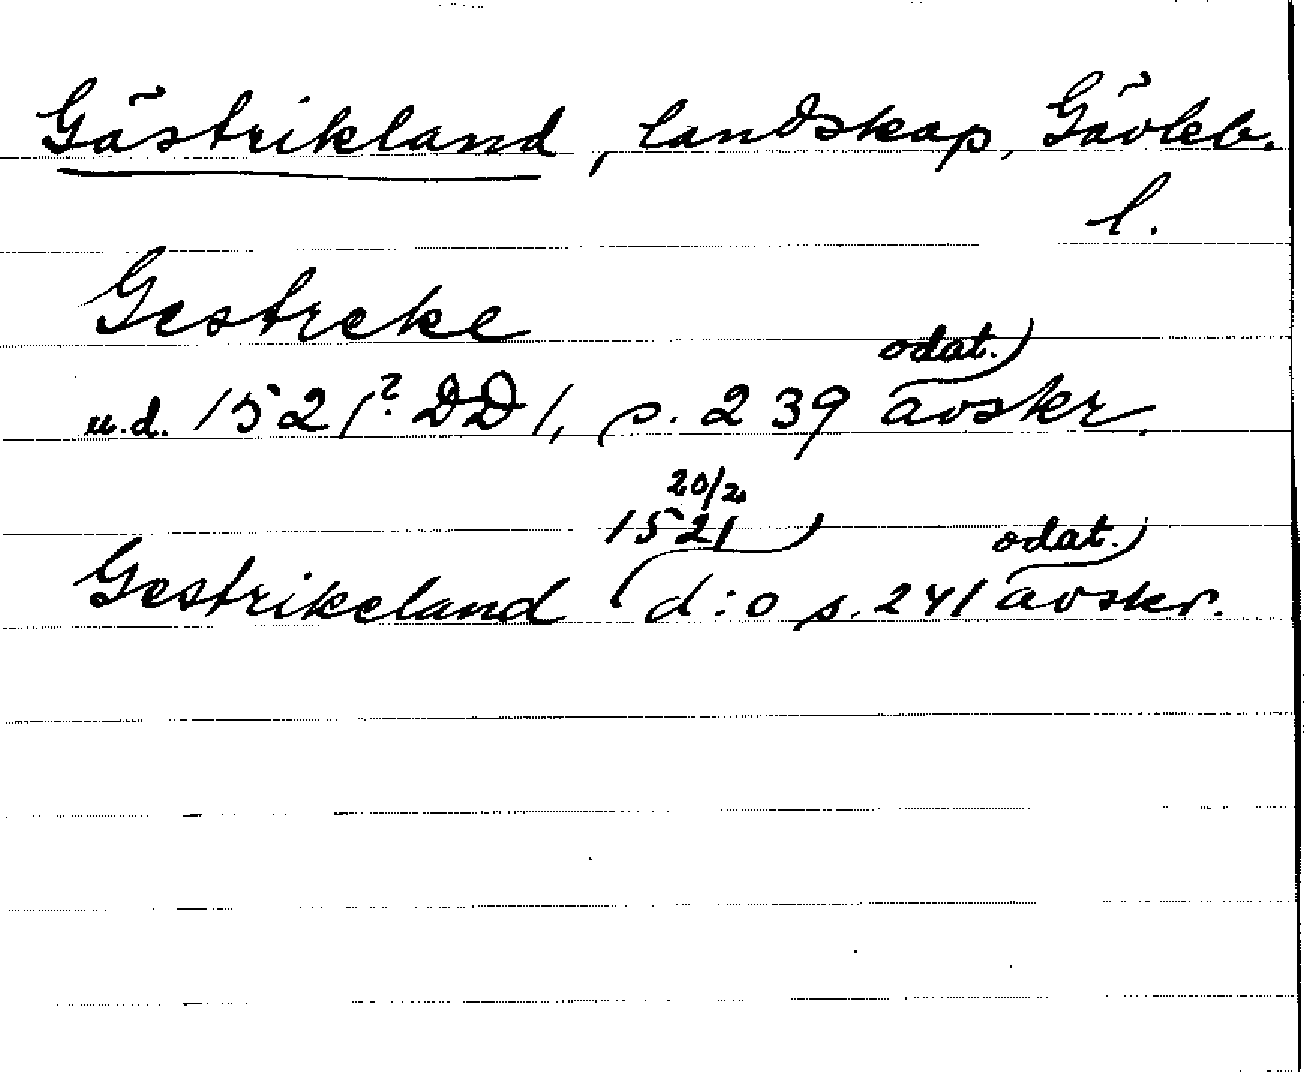 Gästrikland, landskap, Gävleb.
l.
Gestreke
odat.)
u.d. 1521? DD 1, s. 239 avskr.
20/2
1521
Gestrikeland (d:o s. 241 avskr.
odat.)